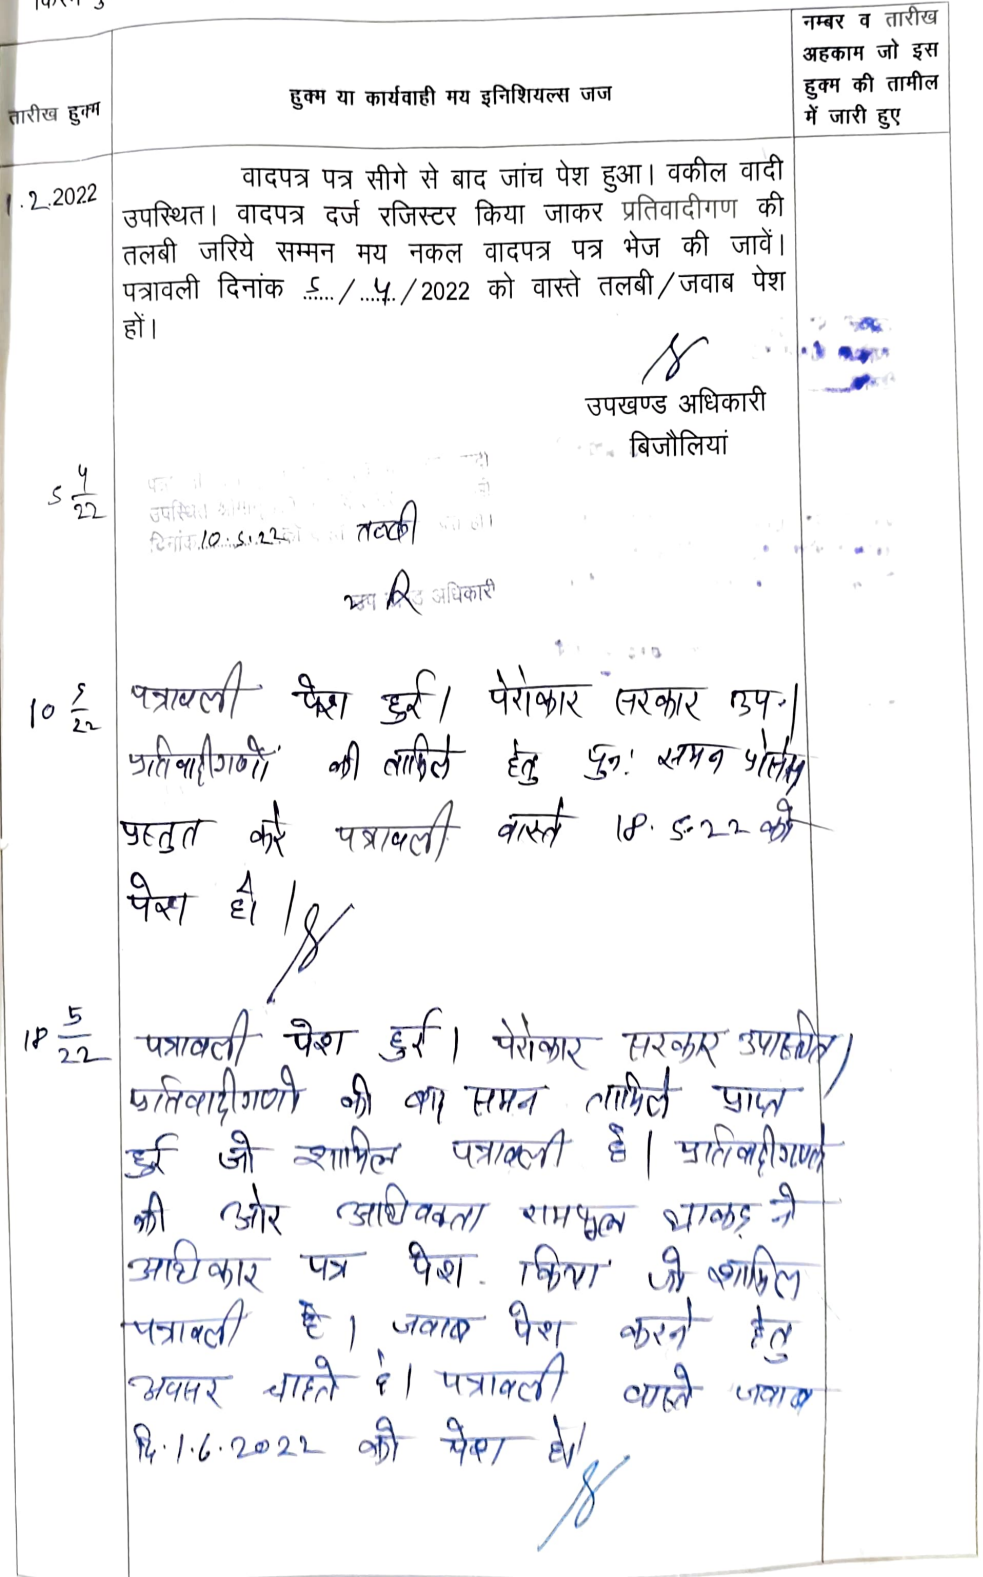 नम्बर व तारीख
अहकाम जो इस
हुक्म की तामील
में जारी हुए
तारीख हुक्म
हुक्म या कार्यवाही मय इनिशियल्स जज
1.2.2022
वादपत्र पत्र सीगे से बाद जांच पेश हुआ। वकील वादी
उपस्थित। वादपत्र दर्ज रजिस्टर किया जाकर प्रतिवादीगण की
तलबी जरिये सम्मन मय नकल वादपत्र पत्र भेज की जावें।
पत्रावली दिनांक 5/4/2022 को वास्ते तलबी/जवाब पेश
हों।
उपखण्ड अधिकारी
बिजौलियां
5 4/22
उपस्थित
दिनांक 10.5.22 को तलबी
अधिकारी
10 5/22
पत्रावली पेश हुई। पेरोकार सरकार उप.।
प्रतिवादीगणों की तामिले हेतु पुन: समन प्रोसेस
प्रस्तुत करे पत्रावली वास्ते 18.5.22 को
पेश हो।
18 5/22
पत्रावली पेश हुई। पेरोकार सरकार उपस्थित।
प्रतिवादीगणो की बाद समन तामिले प्राप्त
हुई जो शामिल पत्रावली है। प्रतिवादीगणो
की ओर अधिवक्ता रामफूल धाकड़ ने
अधिकार पत्र पेश किया जो शामिल
पत्रावली है। जवाब पेश करने हेतु
अवसर चाहते है। पत्रावली वास्ते जवाब
दि.1.6.2022 को पेश हो।